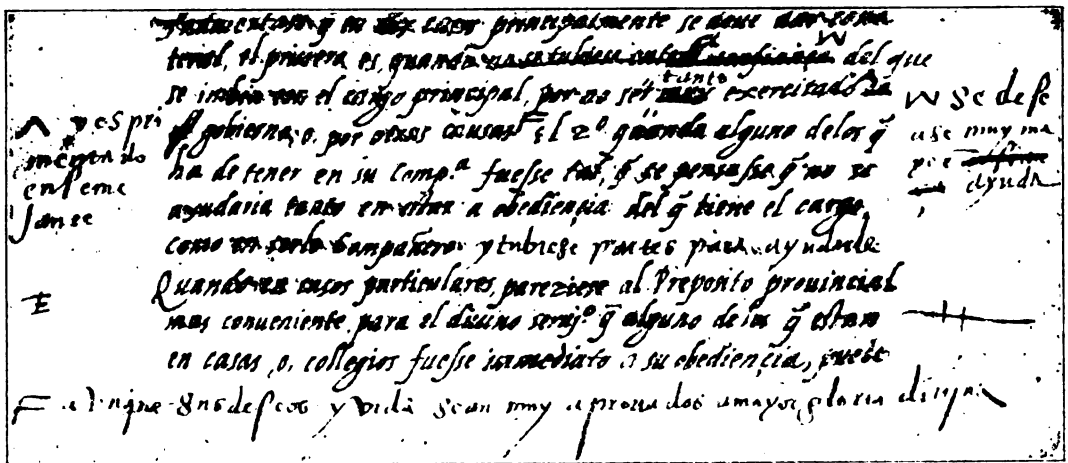 en dos casos principalmente se deue dar cola
teral, el primero es, quando no se tubiese entera confiança del que
se imbia con el cargo principal, por no ser tanto exercitado
gobierno, o, por otras causas F El 2º quando alguno delos q̃
ha de tener en su Comp.ª fuesse tal, q̃ se pensasse q̃ no se
ayudaria tanto en estar a obediençia del q̃ tiene el cargo,
como en serle Compañero. y tubiese partes para ayudarle
Quando en casos particulares, pareziese al Preposito provincial
mas conueniente para el diuino serui.º q̃ alguno de los q̃ estan
en casas, o, collegios fuesse inmediato a su obediençia, puede
F aunque sus deseos y vida sean muy aprouados a mayor gloria diuina
y espri
mentado
en seme
Jante
E
se dese
ase muy ma
yor
ayuda